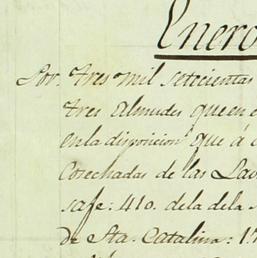 Enero
Por tres mil setecientas
tres almudes que en
en la disposicion que á
Cosechadas de las Lav
safe: 410. de la de la
de Sta. Catalina: 1